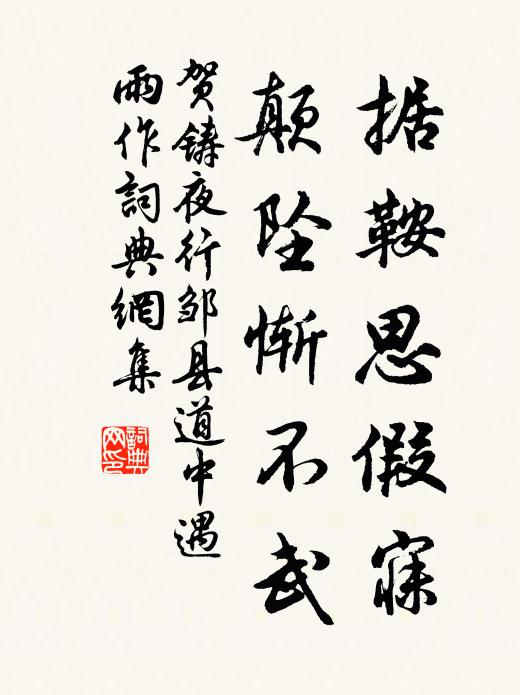 据鞍思假寐
颠坠惭不武
贺铸夜行邹县道中遇
雨作詞典網集
詞典网印